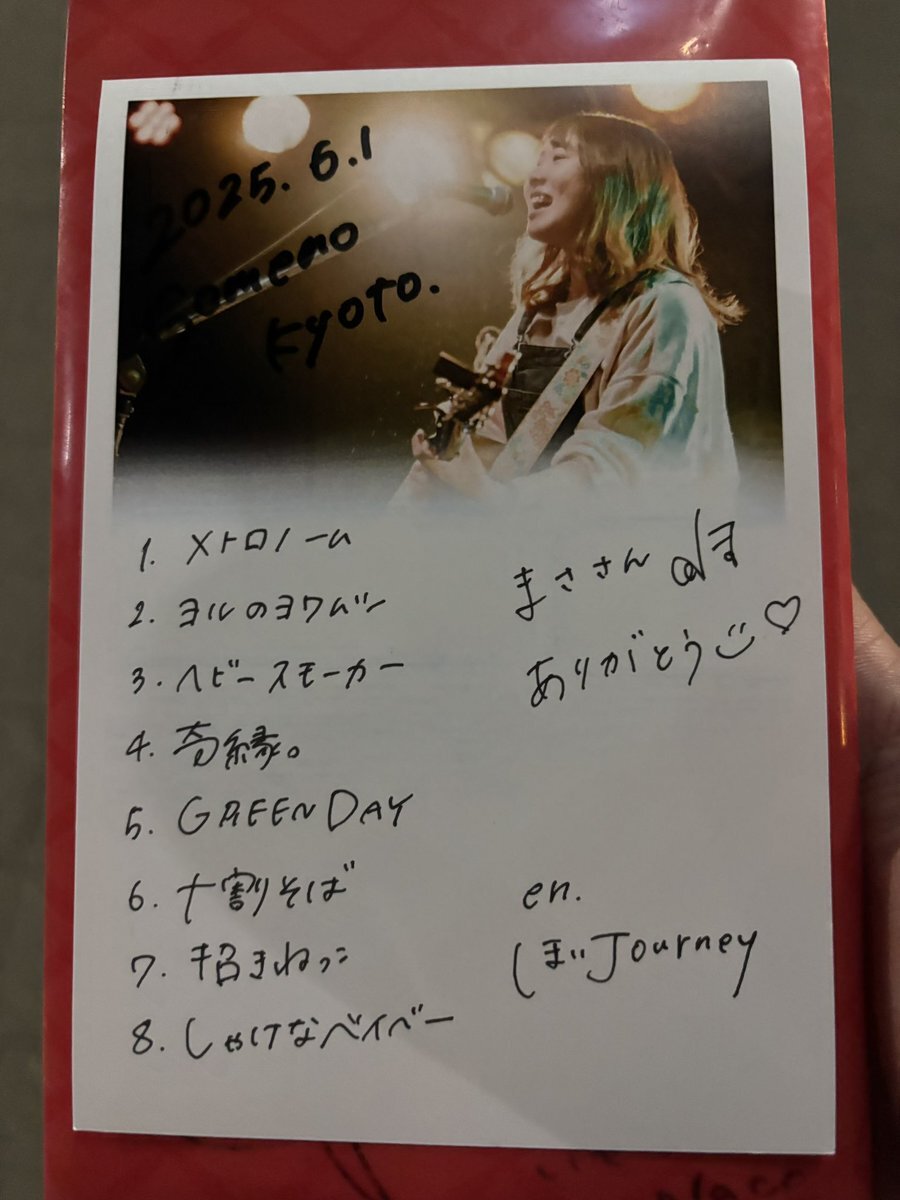 2025.6.1
Kyoto.
1. メトロノーム
2. ヨルのヨワムシ
3. ヘビースモーカー
4. 奇縁。
5. GREEN DAY
6. 十割そば
7. 招きねっこ
8. しゃけなベイベー
まささん
ありがとう
en.
Journey